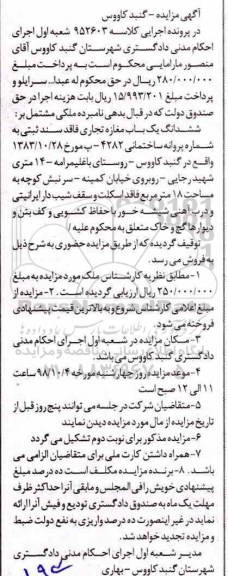 آگهی مزایده - گنبد کاووس
در پرونده اجرایی کلاسه ۹۵۲۶۰۳ شعبه اول اجرای
احکام مدنی دادگستری شهرستان گنبد کاووس آقای
منصور مارامایی محکوم است به پرداخت مبلغ
۲۸۰/۰۰۰/۰۰۰ ریال در حق محکوم له عبدا... سرایلو و
پرداخت مبلغ ۱۵/۹۹۳/۲۰۱ ریال بابت هزینه اجرا در حق
صندوق دولت که در قبال بدهی نامبرده ملکی مشتمل بر:
ششدانگ یک باب مغازه تجاری فاقد سند ثبتی به
شماره پروانه ساختمانی ۴۲۸۲ - ب مورخ ۱۳۸۳/۱۰/۲۸
واقع در گنبد کاووس - روستای باغلیمرامه - ۱۴ متری
شهید رجایی - روبروی خیابان کمینه - سر نبش کوچه به
مساحت ۱۸ متر مربع فاقد اسکلت و سقف شیب دار ایرانیتی
و درب آهنی شیشه خور با حفاظ کشویی و کف بتن و
دیوارها گچ و خاک متعلق به محکوم علیه /
توقیف گردیده که از طریق مزایده حضوری به شرح ذیل
به فروش می رسد.
۱- مطابق نظریه کارشناس ملک مورد مزایده به مبلغ
۲۵۰/۰۰۰/۰۰۰ ریال ارزیابی گردیده است. ۲- مزایده از
مبلغ اعلامی کارشناس شروع و به بالاترین قیمت پیشنهادی
فروخته می شود.
۳- مکان مزایده در شعبه اول اجرای احکام مدنی
دادگستری گنبد کاووس می باشد.
۴- موعد مزایده روز چهارشنبه مورخه ۹۸/۱۰/۴ ساعت
۱۱ الی ۱۲ صبح است
۵- متقاضیان شرکت در جلسه می توانند پنج روز قبل از
تاریخ مزایده از مال مورد مزایده دیدن نمایند
۶- مزایده مذکور برای نوبت دوم تشکیل می گردد
۷- همراه داشتن کارت ملی برای متقاضیان الزامی می
باشد. ۸- برنده مزایده مکلف است ده درصد مبلغ
پیشنهادی خویش را فی المجلس و مابقی آنرا حداکثر ظرف
مهلت یک ماه به صندوق دادگستری تودیع و فیش آنرا ارائه
نماید در غیر اینصورت ده درصد واریزی به نفع دولت ضبط
و مزایده تجدید خواهد شد.
مدیر شعبه اول اجرای احکام مدنی دادگستری
شهرستان گنبد کاووس - بهاری